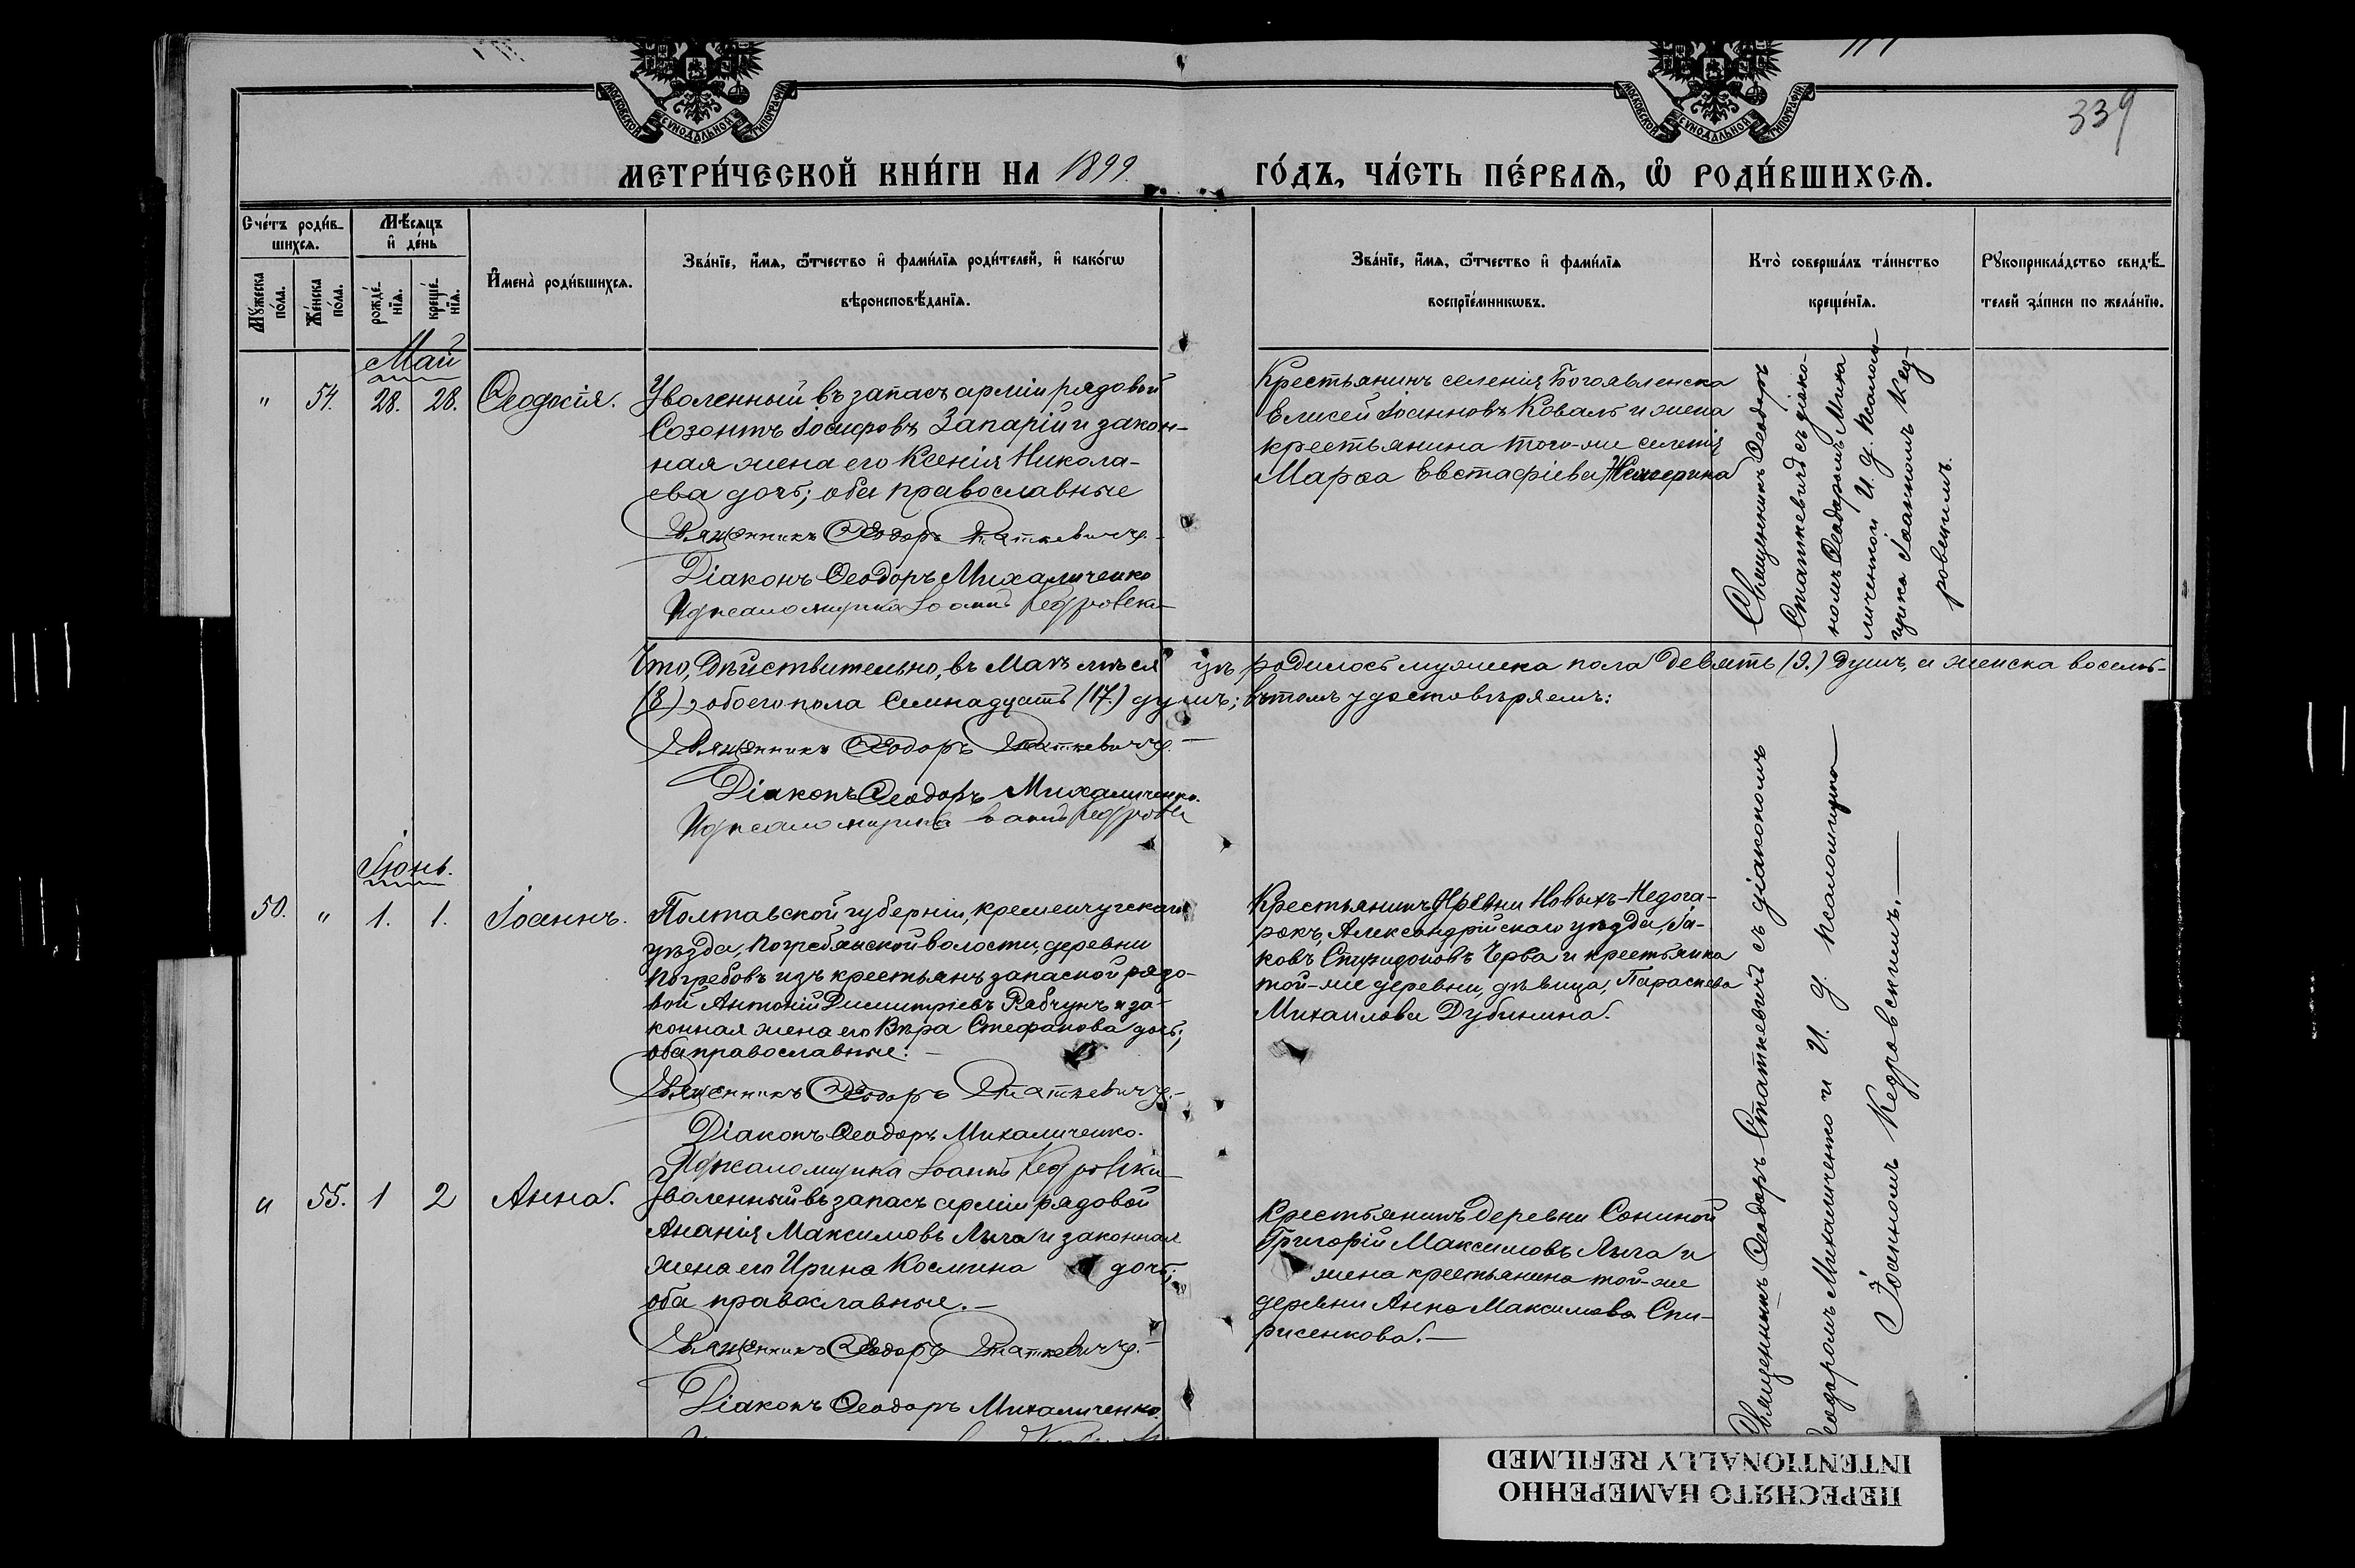 339
МОСКОВСКОЙ СѴНОДАЛЬНОЙ ТИПОГРАФІИ
МОСКОВСКОЙ СѴНОДАЛЬНОЙ ТИПОГРАФІИ
МЕТРИ́ЧЕСКОЙ КНИ́ГИ НА 1899 ГО́ДЪ, ЧА́СТЬ ПЕ́РВАѦ, Ѡ҆ РОДИ́ВШИХСѦ.
Сче́тъ роди́в-
шихсѧ.
Мѹ́жеска
по́ла.
Же́нска
по́ла.
Мѣ́сѧцъ
и҆ де́нь
рожде́-
нїѧ.
креще́-
нїѧ.
И҆мена̀ роди́вшихсѧ.
Зва́нїе, и҆́мѧ, ѻ҆́тчество и҆ фами́лїѧ роди́телей, и҆ како́гѡ
вѣроисповѣ́данїѧ.
Зва́нїе, и҆́мѧ, ѻ҆́тчество и҆ фами́лїѧ
воспрїе́мникѡвъ.
Кто̀ соверша́лъ та́инство
креще́нїѧ.
Рѹкоприкла́дство свидѣ́-
телей за́писи по жела́нїю.
Май
" 54. 28. 28. Ѳеодосія.
Уволенный въ запасъ арміи рядовой
Созонтъ Іосифовъ Запарій и закон-
ная жена его Ксенія Никола-
ева дочь; оба православные
Священникъ Ѳеодоръ Статкевичъ.
Діаконъ Ѳеодоръ Михаличенко
И д псаломщика Іоаннъ Кедровскі
Крестьянинъ селенія Богоявленска
Елисей Іоанновъ Коваль и жена
крестьянина того-же селенія
Марѳа Евстафіева
Священникъ Ѳеодоръ
Статкевичъ съ діако-
номъ Ѳеодоромъ Миха
личенкой И. д. псалом-
щика Іоанномъ Кед-
ровскимъ.
Что, дѣйствительно, въ Маѣ мѣсяцѣ родилось мужска пола девять (9.) душъ, а женска восемь-
(8), обоего пола семнадцать (17.) душъ; въ томъ удостовѣряемъ:
Священникъ Ѳеодоръ Статкевичъ.
Діаконъ Ѳеодоръ Михаличенко.
И д псаломщика Іоаннъ Кедровскі
Іюнь.
50. " 1. 1. Іоаннъ.
Полтавской губерніи, кременчугскаго
уѣзда, Погребянской волости, деревни
Погребовъ изъ крестьянъ запасной рядо-
вой Антоній Димитріевъ Рябчунъ и за-
конная жена его Вѣра Стефанова дочь;
оба православные.
Священникъ Ѳеодоръ Статкевичъ.
Діаконъ Ѳеодоръ Михаличенко.
И д псаломщика Іоаннъ Кедровскі
Крестьянинъ деревни Новыхъ-Недога-
рокъ, Александрійскаго уѣзда, Іа-
ковъ Спиридоновъ Черва и крестьянка
той-же деревни, дѣвица, Параскева
Михаилова Дубинина.
" 55. 1 2 Анна.
Уволенный въ запасъ арміи рядовой
Ананія Максимовъ Лыга и законная
жена его Ирина Космина дочь;
оба православные.
Священникъ Ѳеодоръ Статкевичъ.
Діаконъ Ѳеодоръ Михаличенко.
Крестьянинъ деревни Сониной
Григорій Максимовъ Лыга и
жена крестьянина той-же
деревни Анна Максимова Спи-
рисенкова.
Священникъ Ѳеодоръ Статкевичъ съ діакономъ
Ѳеодоромъ Михаличенко и И. д. псаломщика
Іоанномъ Кедровскимъ.
ПЕРЕСНЯТО НАМЕРЕННО
INTENTIONALLY REFILMED